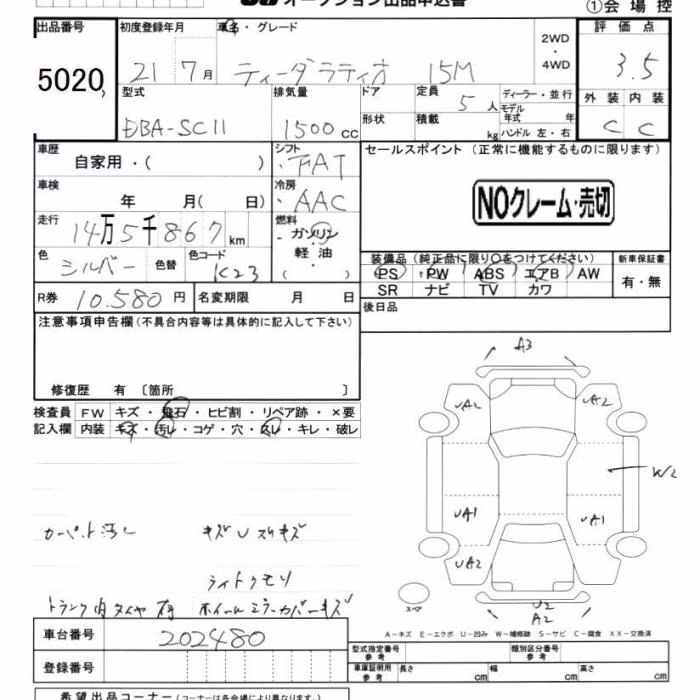 オークション出品申込書
①会場控
出品番号 初度登録年月 車名・グレード 2WD・4WD 評価点
5020 21 7月 ティーダラティオ 15M 3.5
型式 排気量 ドア 定員 5人 ディーラー・並行 外装 内装
DBA-SC11 1500cc 形状 積載 kg モデル年式 年 ハンドル 左・右 C C
車歴 自家用・( ) シフト ・FAT セールスポイント (正常に機能するものに限ります)
車検 年 月( 日) 冷房 ・AAC NOクレーム・売切
走行 14万5千867km 燃料 ・ガソリン 軽油 ・( )
色 シルバー 色替 色コード K23 装備品 (純正品に限り○をつけてください) 新車保証書
PS PW ABS エアB AW 有・無
SR ナビ TV カワ
R券 10.580円 名変期限 月 日 後日品
注意事項申告欄 (不具合内容等は具体的に記入して下さい)
修復歴 有 〔箇所 〕
検査員 FW キズ・飛石・ヒビ割・リペア跡・×要
記入欄 内装 キズ・汚レ・コゲ・穴・スレ・キレ・破レ
A3
UA2 UA2
W2
UA1 UA1
UA2 UA2
スペア
U2
A2
カーペット汚レ キズUスリキズ
ライトクモリ
トランク内タイヤ有 ホイールミラーカバーキズ
A-キズ E-エクボ U-凹み W-補修跡 S-サビ C-腐食 XX-交換済
車台番号 202480 型式指定番号 参考 類別区分番号 参考
登録番号 車庫証明用 参考 長さ cm 幅 cm 高さ cm
希望出品コーナー (コーナーは各会場により異なります。)